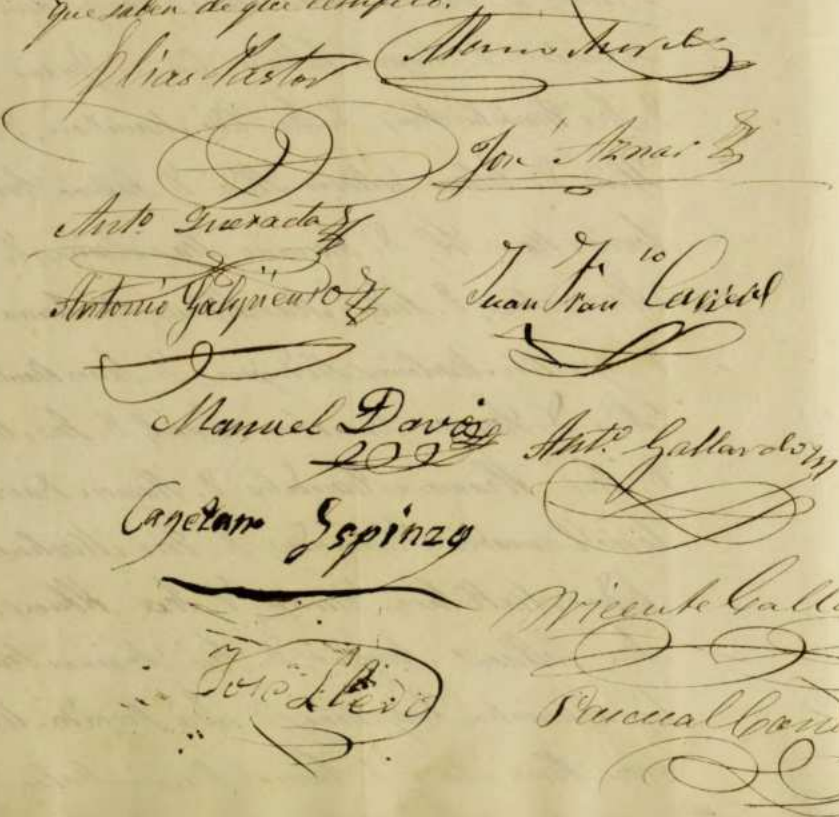 que saben de que certifico.
Elias Pastor
José Aznar
Antº Quesada
Antonio Galquiento
Juan Franio Carical
Manuel Davó
Antº Gallardo
Cayetano Espinzo
Vicente Gall
José Lledó
Pascual Can